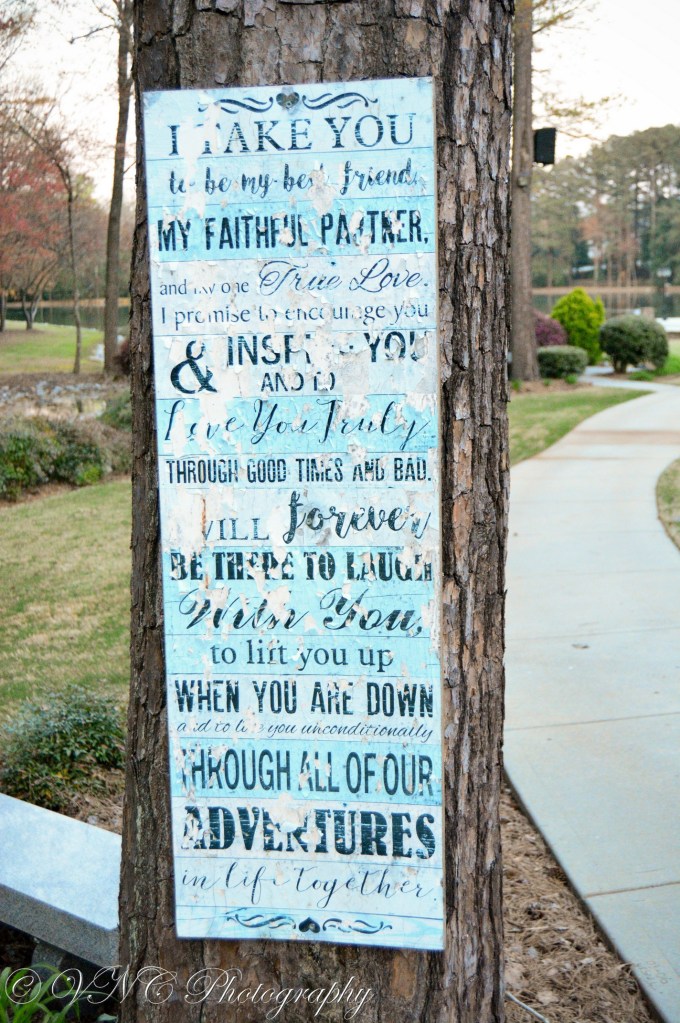 I TAKE YOU
to be my best friend,
MY FAITHFUL PARTNER,
and my one True Love.
I promise to encourage you
& INSPIRE YOU
AND TO
Love You Truly
THROUGH GOOD TIMES AND BAD.
WILL forever
BE THERE TO LAUGH
With You,
to lift you up
WHEN YOU ARE DOWN
and to love you unconditionally
THROUGH ALL OF OUR
ADVENTURES
in life together.
© VNC Photography